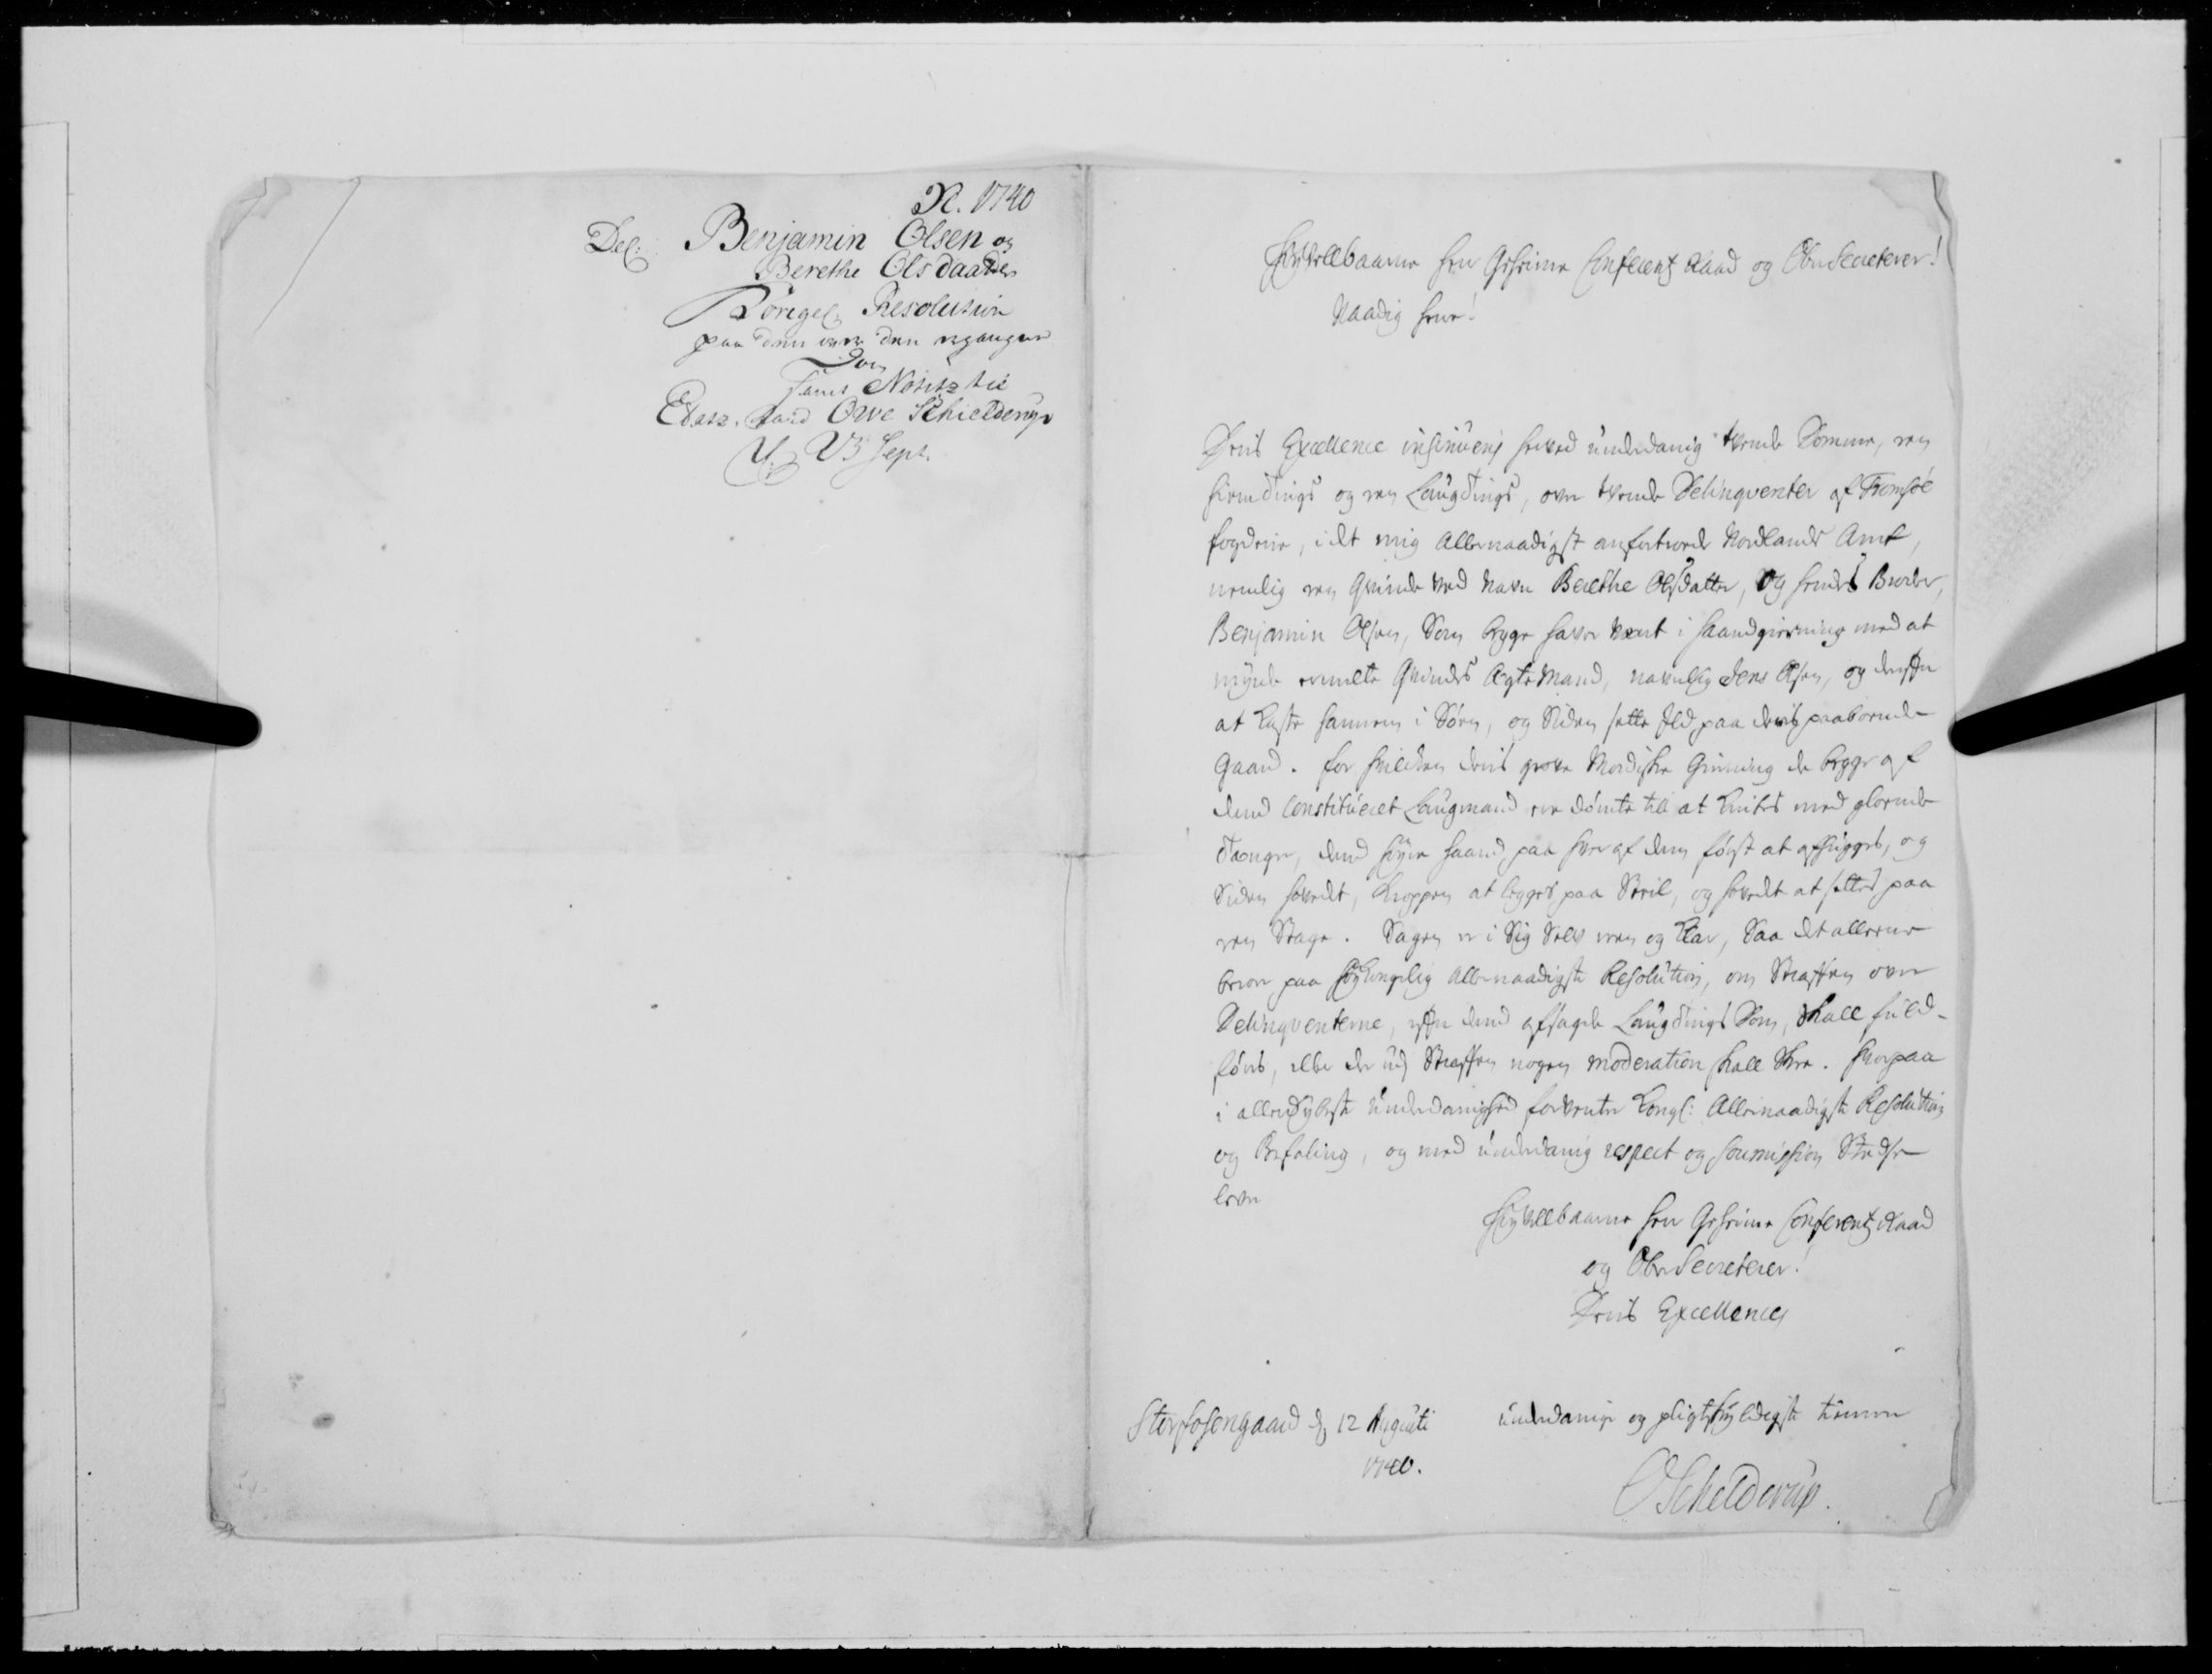 N. 1740
Del: Benjamin Olsen og
Berethe Olsdaatter
Kongel Resolution
paa dend over dem ergangne
Dom
samt Notitz till
Etatz. Raad Owe Schielderup
13 Sept.
Høyvelbaarne Herr Geheime Conferentz Raad og Ober Secreterer!
Naadig Herre!
Deris Excellence insinueris herved underdanig tvende Domme, en
Hiemtings og en Laugtings, over tvende Delinqventer af Tromsöe
fogderie, i det mig Allernaadigst anfortroede Nordlands Amt,
nemlig en Qvinde ved Navn Berethe Olsdatter, og hendes Broder,
Benjamin Olsen, Som begge haver været i Haandgierning med at
myrde ermelte Qvindes Ægte Mand, navnlig Jens Olsen, og derefter
at kaste hannem i Søen, og Siden sætte Ild paa deris paaboende
Gaard. For hvilcken deris grove Mordiske Gierning de begge af
dend Constitueret Laugmand ere dømte till at knibes med gloende
Tænger, dend høyre Haand paa hver af dem først at afhugges, og
Siden Hovedet, Kroppen at legges paa Steil, og Hovedet at settes paa
en Stage. Sagen er i Sig Selv reen og klar, Saa det alleene
beroer paa Høykongelig Allernaadigste Resolution, om Straffen over
Delinqventerne, efter dend afsagde Laugtings Dom, skall fuld-
føres, eller der udj Straffen nogen moderation skall skee. Hvorpaa
i allerdybeste Underdanighed forventer Kongl: Allernaadigste Resolution
og Befaling, og med underdanig respect og Soumission Stedse
lever
Høyvelbaarne Herr Geheime Conferentz Raad
og Ober Secreterer!
Deris Excellences
Storfosengaard d 12 Augusti
1740.
underdanige og pligtskyldigste tienere
O Schelderup.